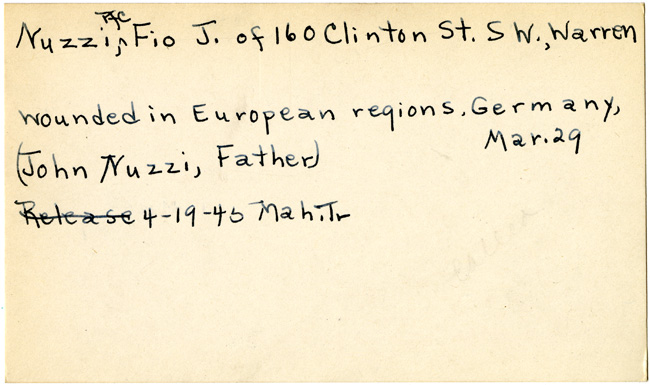 Pfc
Nuzzi, Fio J. of 160 Clinton St. S W., Warren
wounded in European regions, Germany,
Mar. 29
(John Nuzzi, Father)
Release 4-19-45 Mah. Tr